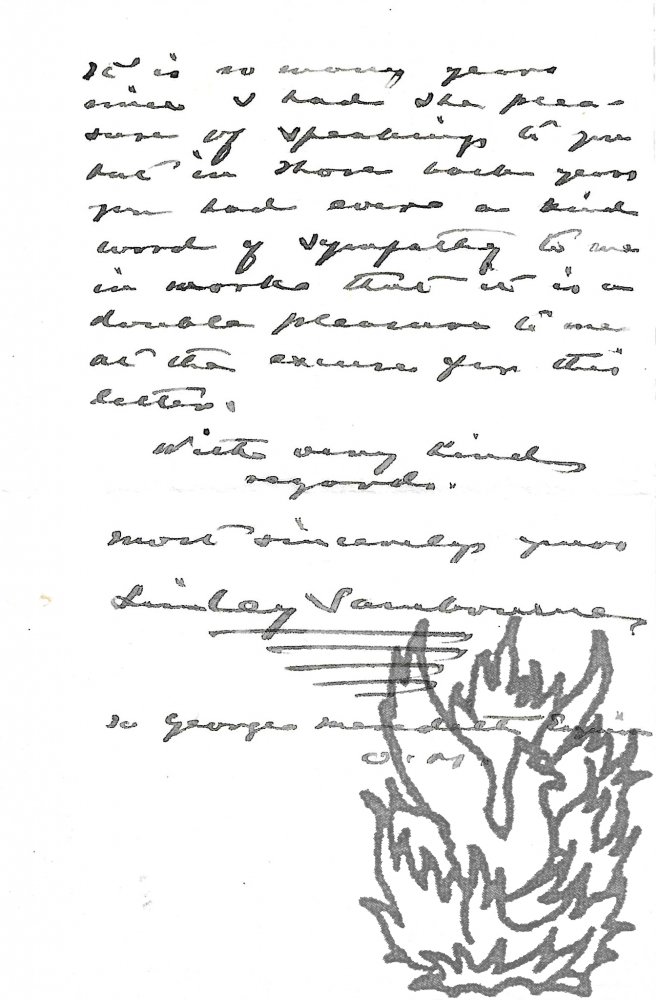 It is so many years
since I had the plea-
sure of speaking to you
but in those back years
you had ever a kind
word of sympathy to me
in works that it is a
double pleasure to me
as the excuse for this
letter.
With very kind
regards.
Most sincerely yours
Linley Sambourne
To George Meredith Esquire
O.M.